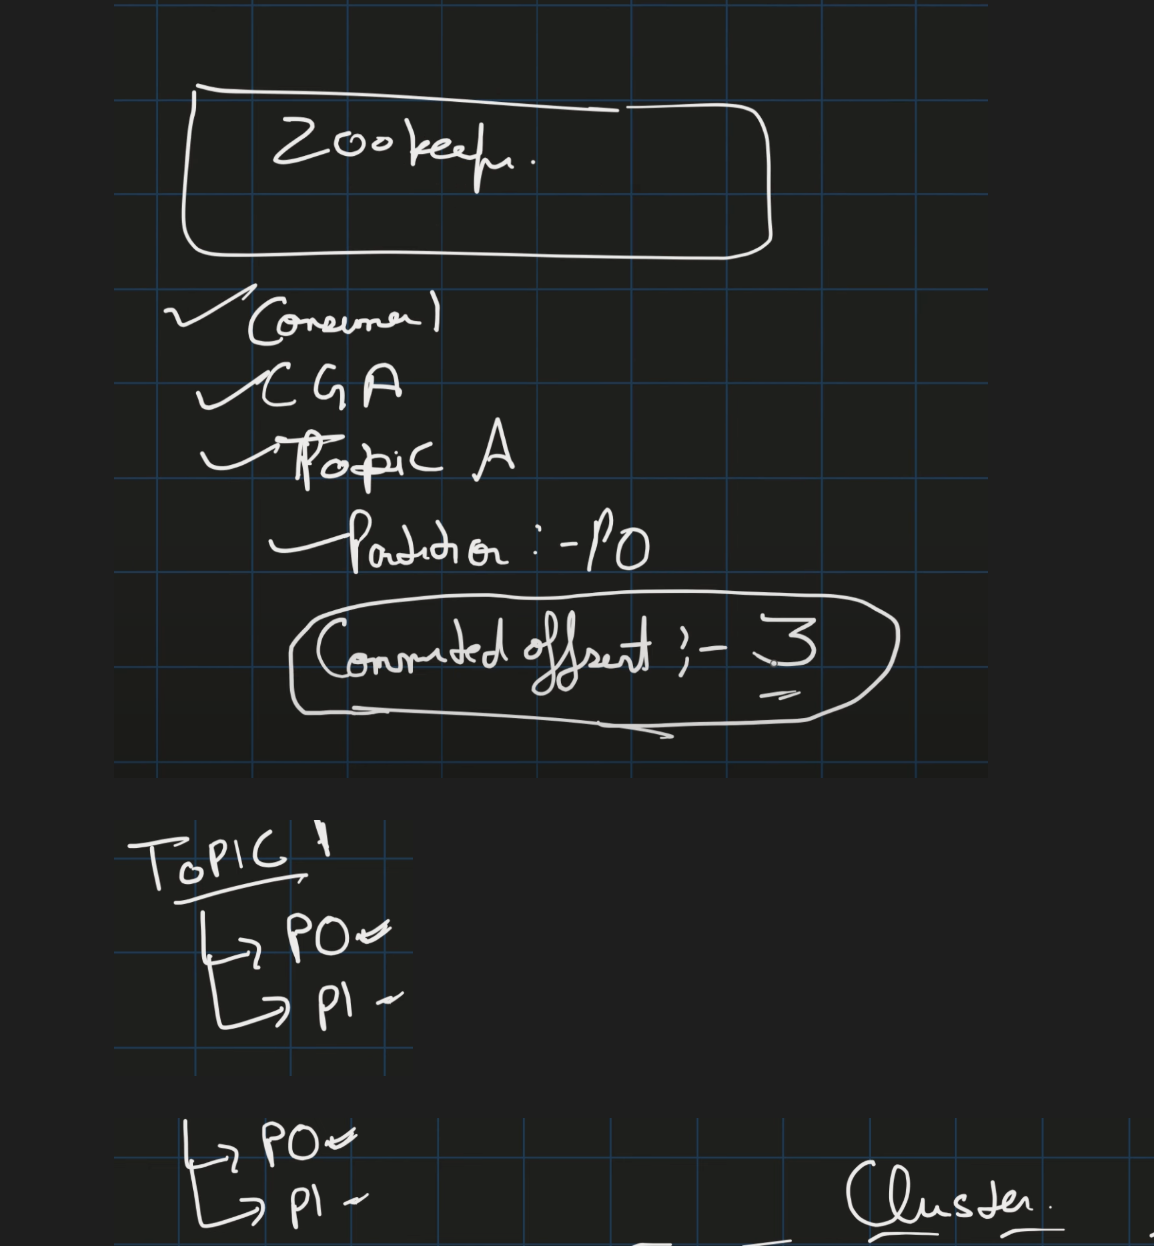 Zookeeper.
Consumer 1
CGA
Topic A
Partition :- P0
Committed offsent :- 3
TOPIC 1
P0
P1
P0
P1
Cluster.